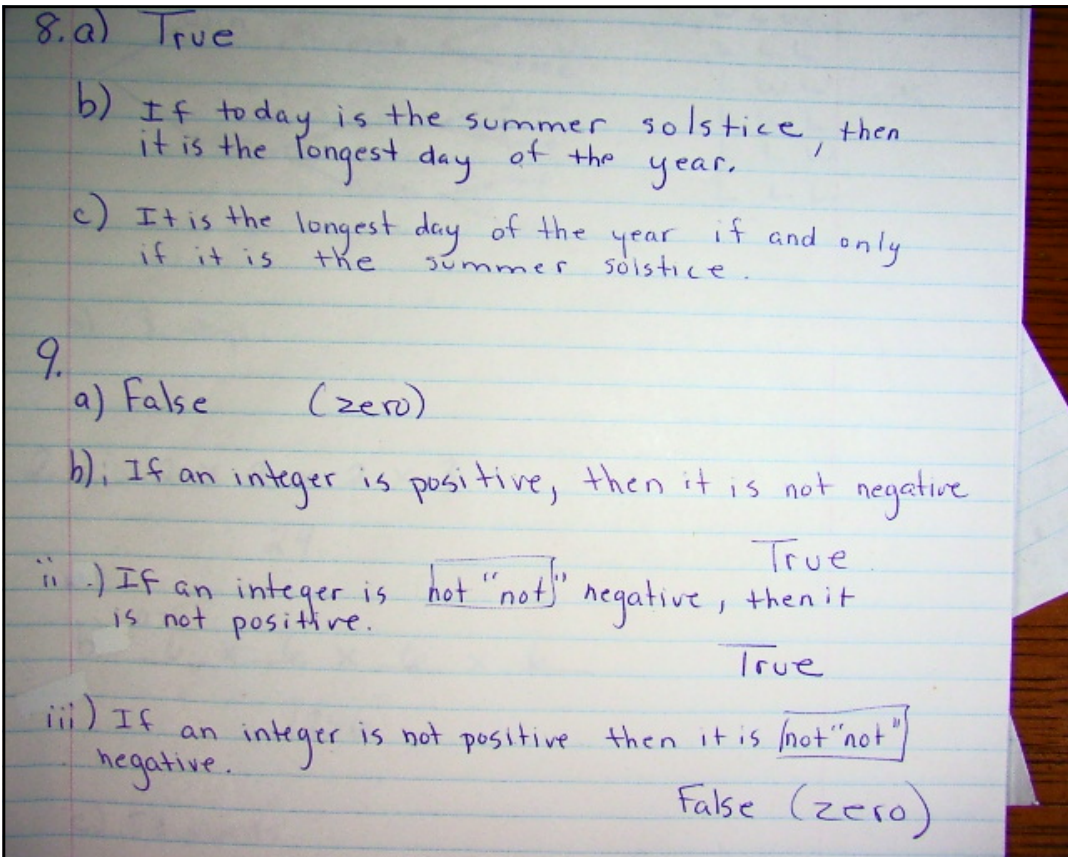 8.a) True
b) If today is the summer solstice, then
it is the longest day of the year.
c) It is the longest day of the year if and only
if it is the summer solstice.
9.
a) False (zero)
b)i If an integer is positive, then it is not negative
True
ii.) If an integer is not "not" negative, then it
is not positive.
True
iii) If an integer is not positive then it is not "not"
negative.
False (zero)